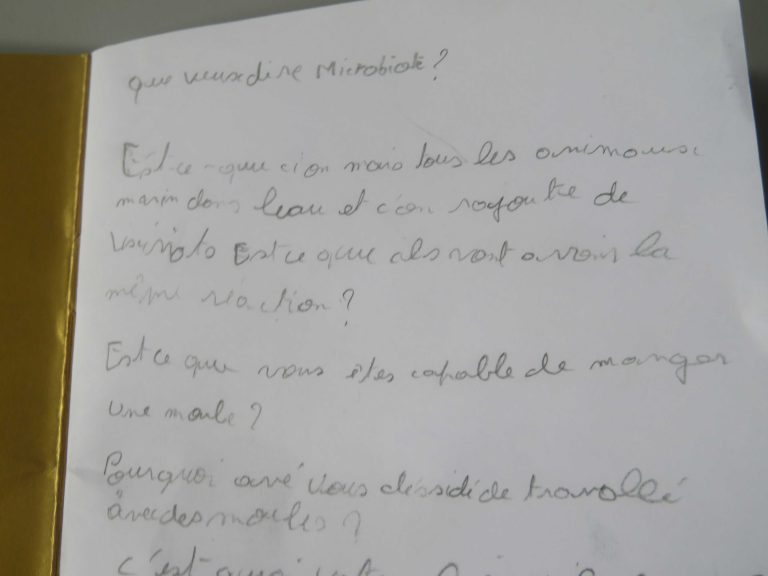 que veux dire Microbiote ?
Est ce - que ci on mais tous les animaux
marin dans l'eau et c'on rajoute de
Est ce que als vont avoir la
même réaction ?
Est ce que vous êtes capable de manger
une moule ?
Pourquoi avé vous déssidé de travallé
avec des moules ?
c'est quoi